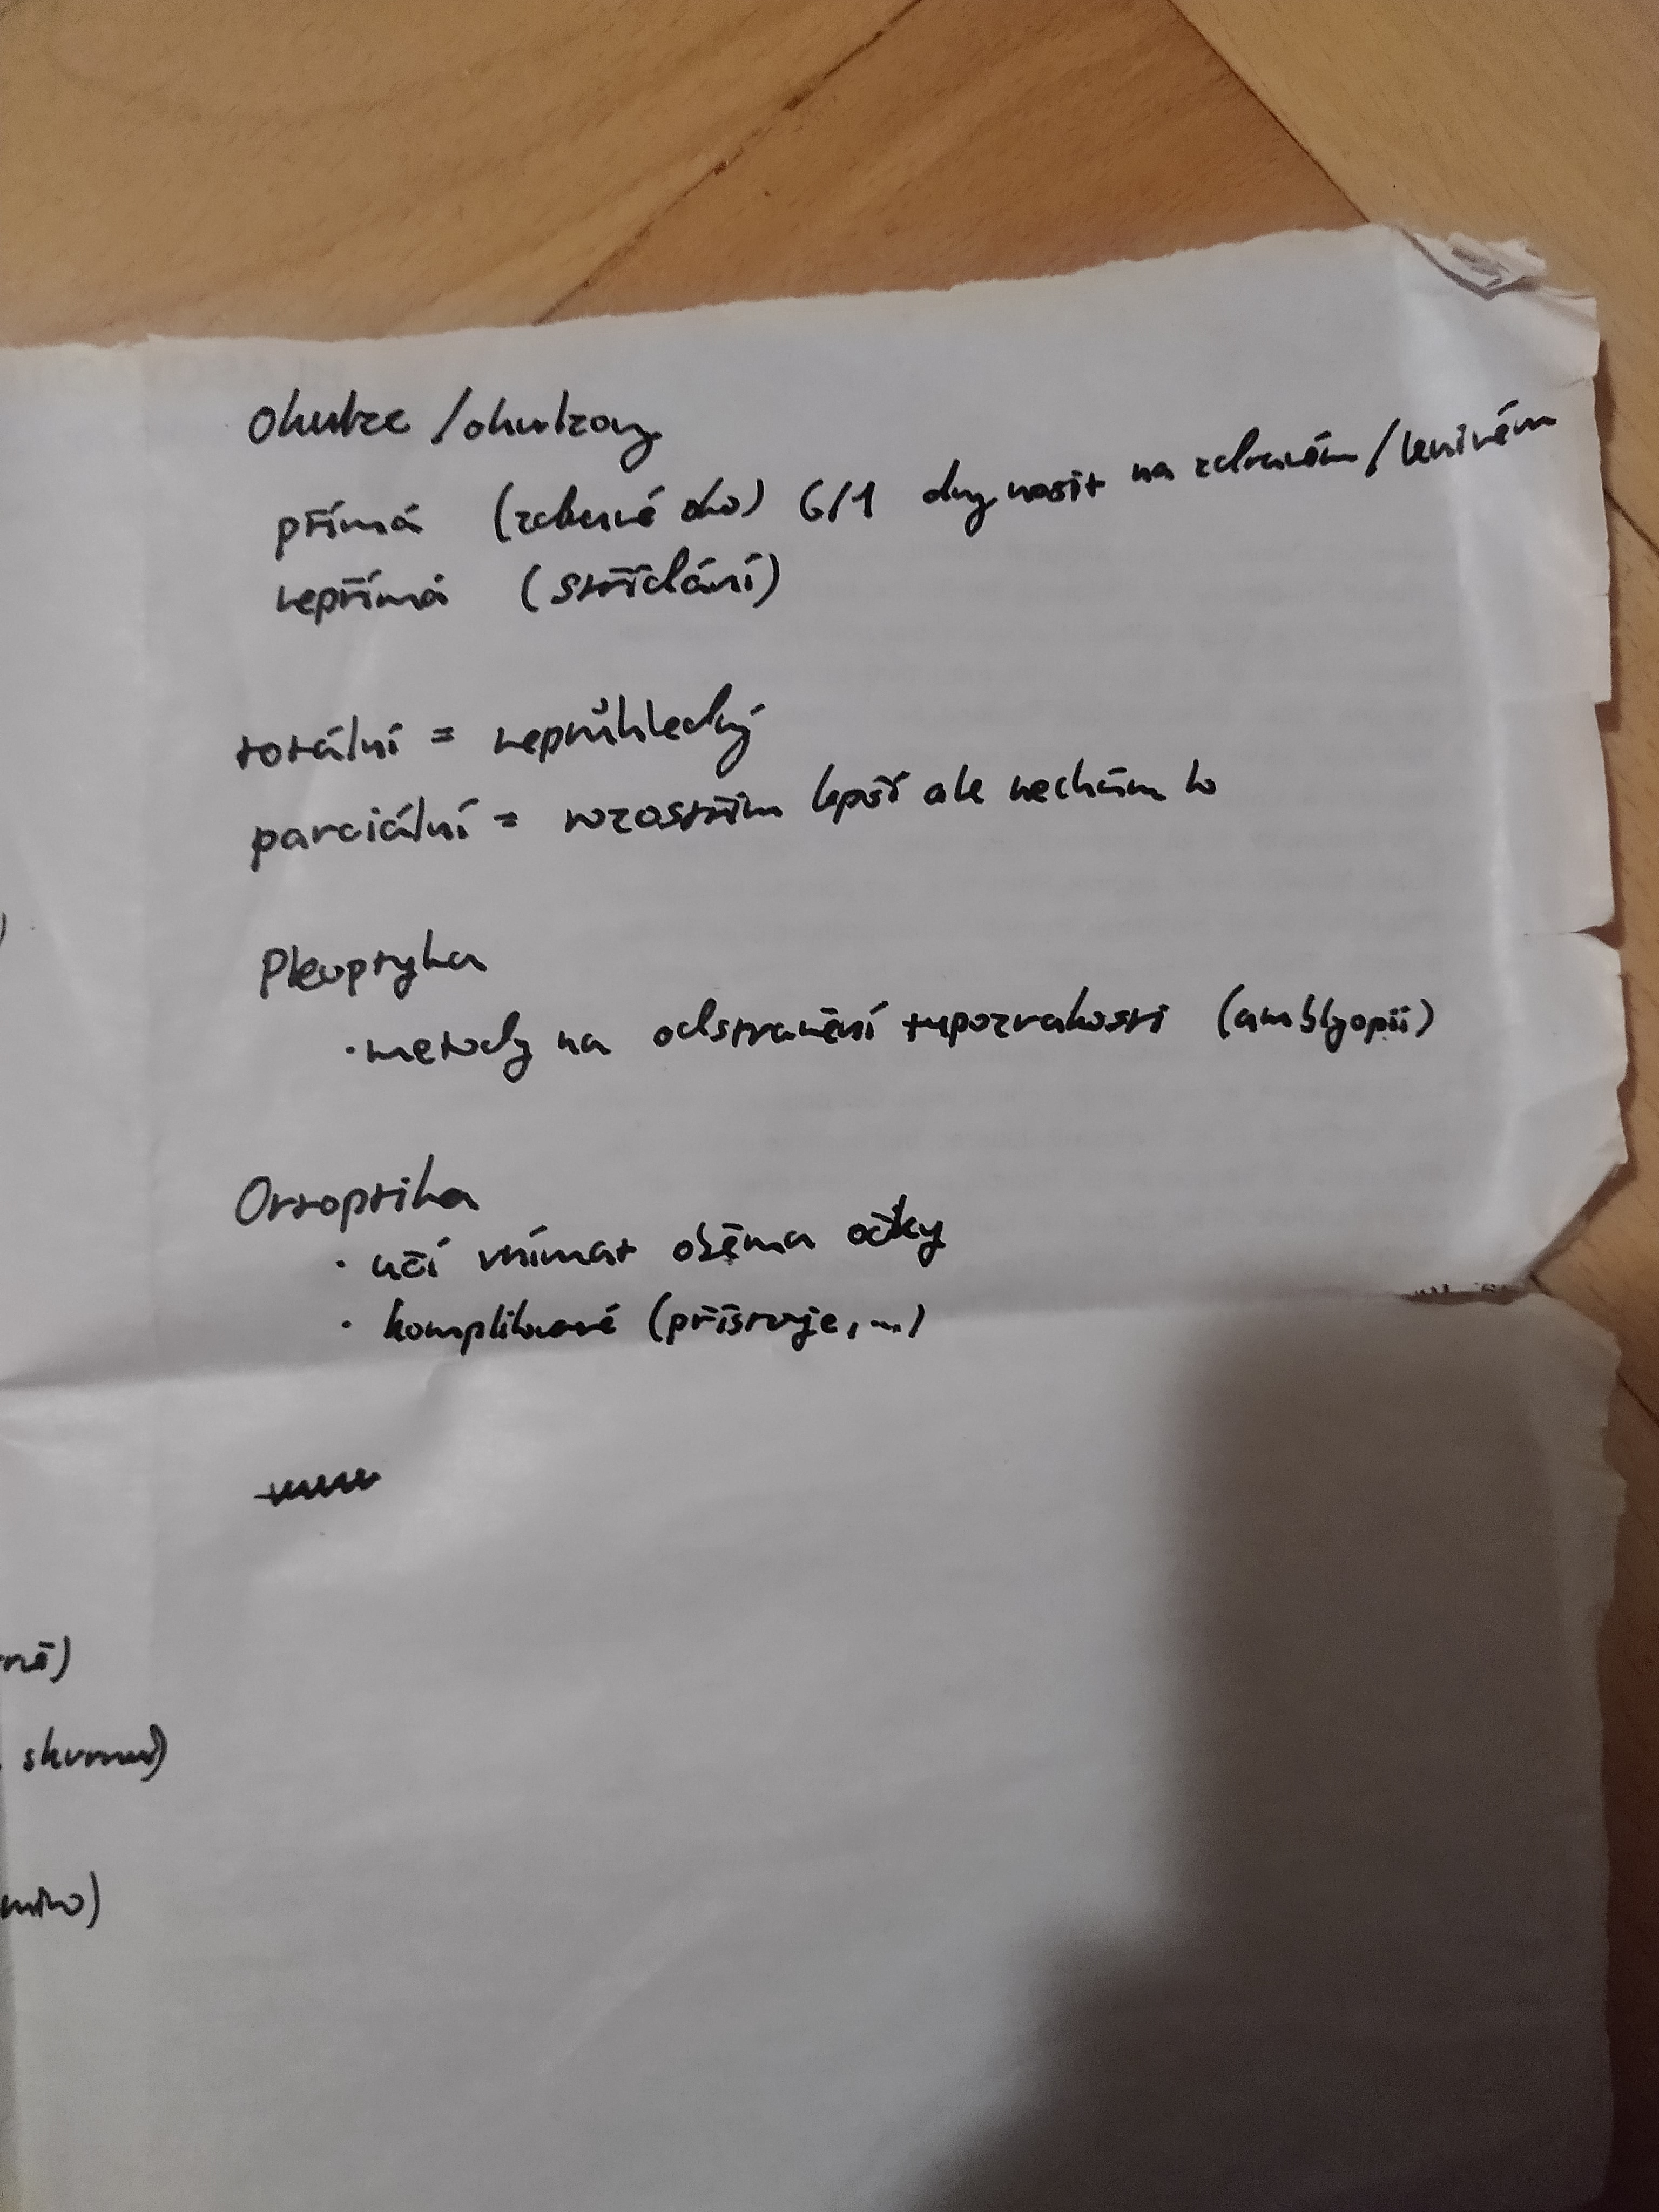 Okluze / okluzory
přímá (zdravé oko) 6/1 dny nosit na zdravém / lenivém
nepřímá (střídání)
totální = neprůhledný
parciální = rozostřím lepší ale nechám to
Pleoptyka
· metody na odstranění tupozrakosti (amblyopii)
Ortoptika
· učí vnímat oběma očky
· komplikované (přístroje, ...)
rně)
skvrnu)